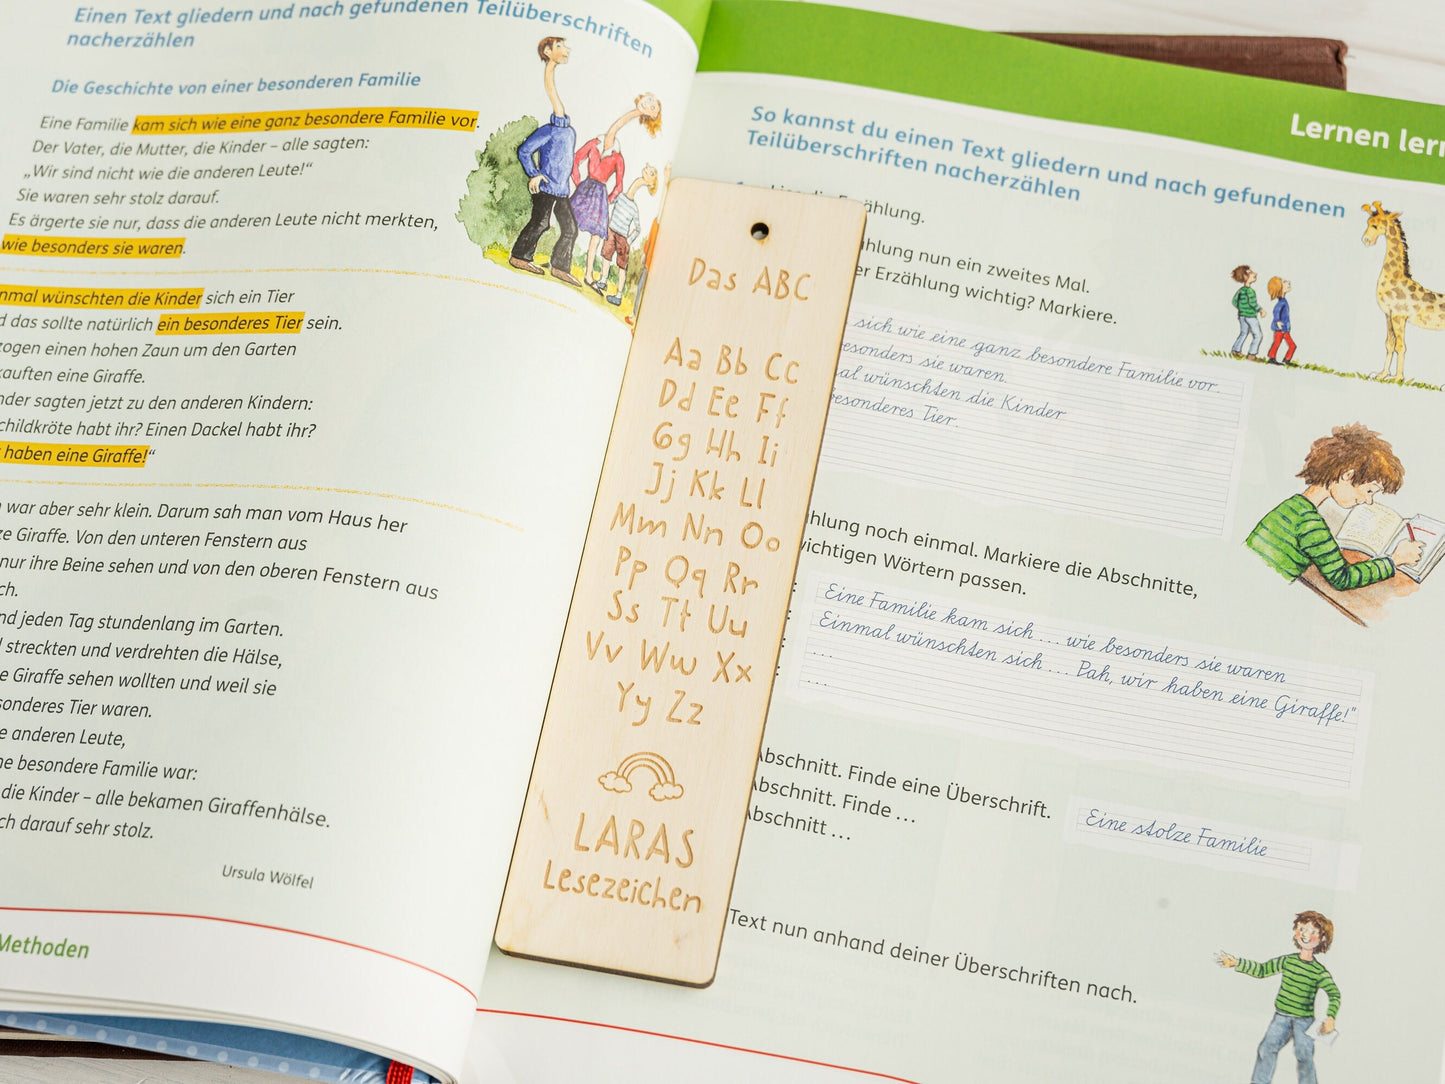 Einen Text gliedern und nach gefundenen Teilüberschriften
nacherzählen
Die Geschichte von einer besonderen Familie
Eine Familie kam sich wie eine ganz besondere Familie vor.
Der Vater, die Mutter, die Kinder – alle sagten:
„Wir sind nicht wie die anderen Leute!“
Sie waren sehr stolz darauf.
Es ärgerte sie nur, dass die anderen Leute nicht merkten,
wie besonders sie waren.
nmal wünschten die Kinder sich ein Tier
d das sollte natürlich ein besonderes Tier sein.
zogen einen hohen Zaun um den Garten
kauften eine Giraffe.
nder sagten jetzt zu den anderen Kindern:
childkröte habt ihr? Einen Dackel habt ihr?
haben eine Giraffe!“
war aber sehr klein. Darum sah man vom Haus her
ze Giraffe. Von den unteren Fenstern aus
nur ihre Beine sehen und von den oberen Fenstern aus
ch.
nd jeden Tag stundenlang im Garten.
streckten und verdrehten die Hälse,
e Giraffe sehen wollten und weil sie
sonderes Tier waren.
e anderen Leute,
ne besondere Familie war:
die Kinder – alle bekamen Giraffenhälse.
ch darauf sehr stolz.
Ursula Wölfel
Methoden
Das ABC
Aa Bb Cc
Dd Ee Ff
Gg Hh Ii
Jj Kk Ll
Mm Nn Oo
Pp Qq Rr
Ss Tt Uu
Vv Ww Xx
Yy Zz
LARAS
Lesezeichen
Lernen ler
So kannst du einen Text gliedern und nach gefundenen
Teilüberschriften nacherzählen
Erzählung.
ählung nun ein zweites Mal.
er Erzählung wichtig? Markiere.
sich wie eine ganz besondere Familie vor.
esonders sie waren.
al wünschten die Kinder
besonderes Tier.
hlung noch einmal. Markiere die Abschnitte,
wichtigen Wörtern passen.
Eine Familie kam sich ... wie besonders sie waren
Einmal wünschten sich ... Pah, wir haben eine Giraffe!“
...
...
Abschnitt. Finde eine Überschrift.
Abschnitt. Finde ...
Abschnitt ...
Eine stolze Familie
Text nun anhand deiner Überschriften nach.